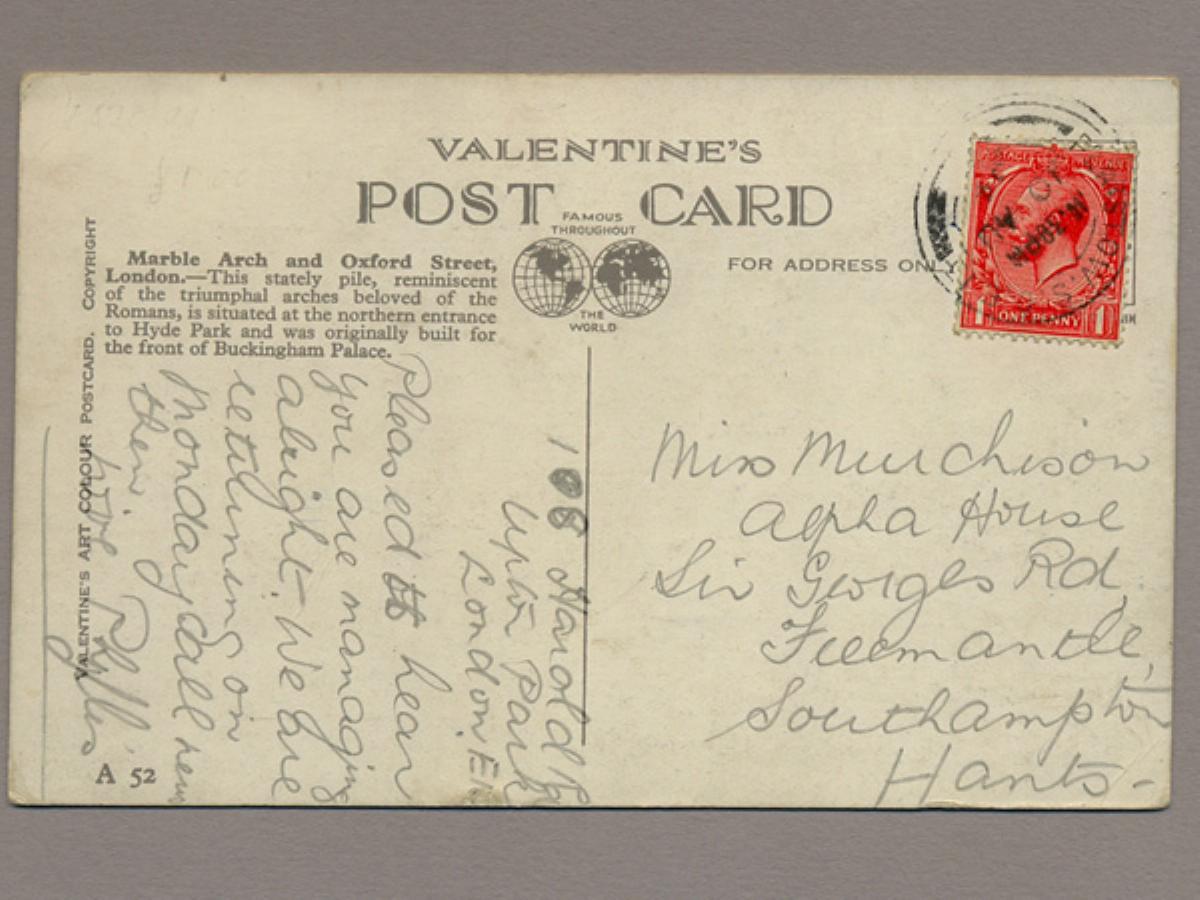 VALENTINE'S
POST CARD
FAMOUS
THROUGHOUT
THE
WORLD
Marble Arch and Oxford Street,
London.—This stately pile, reminiscent
of the triumphal arches beloved of the
Romans, is situated at the northern entrance
to Hyde Park and was originally built for
the front of Buckingham Palace.
FOR ADDRESS ON
POSTAGE REVENUE
1 ONE PENNY 1
VALENTINE'S ART COLOUR POSTCARD. COPYRIGHT
108 Harold Rd
Upton Park
London E
Pleased to hear
you are managing
alright. We are
returning on
Monday, all news
then.
Love Phyllis
Miss Murchison
Alpha House
Sir Georges Rd,
Freemantle,
Southampton
Hants-
A 52